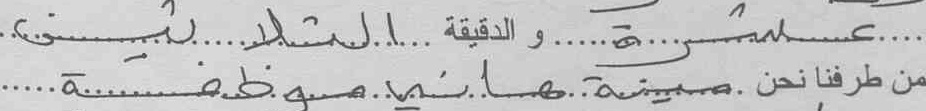 عشرة و الدقيقة الثلاثين
من طرفنا نحن صينة هاني موظفة